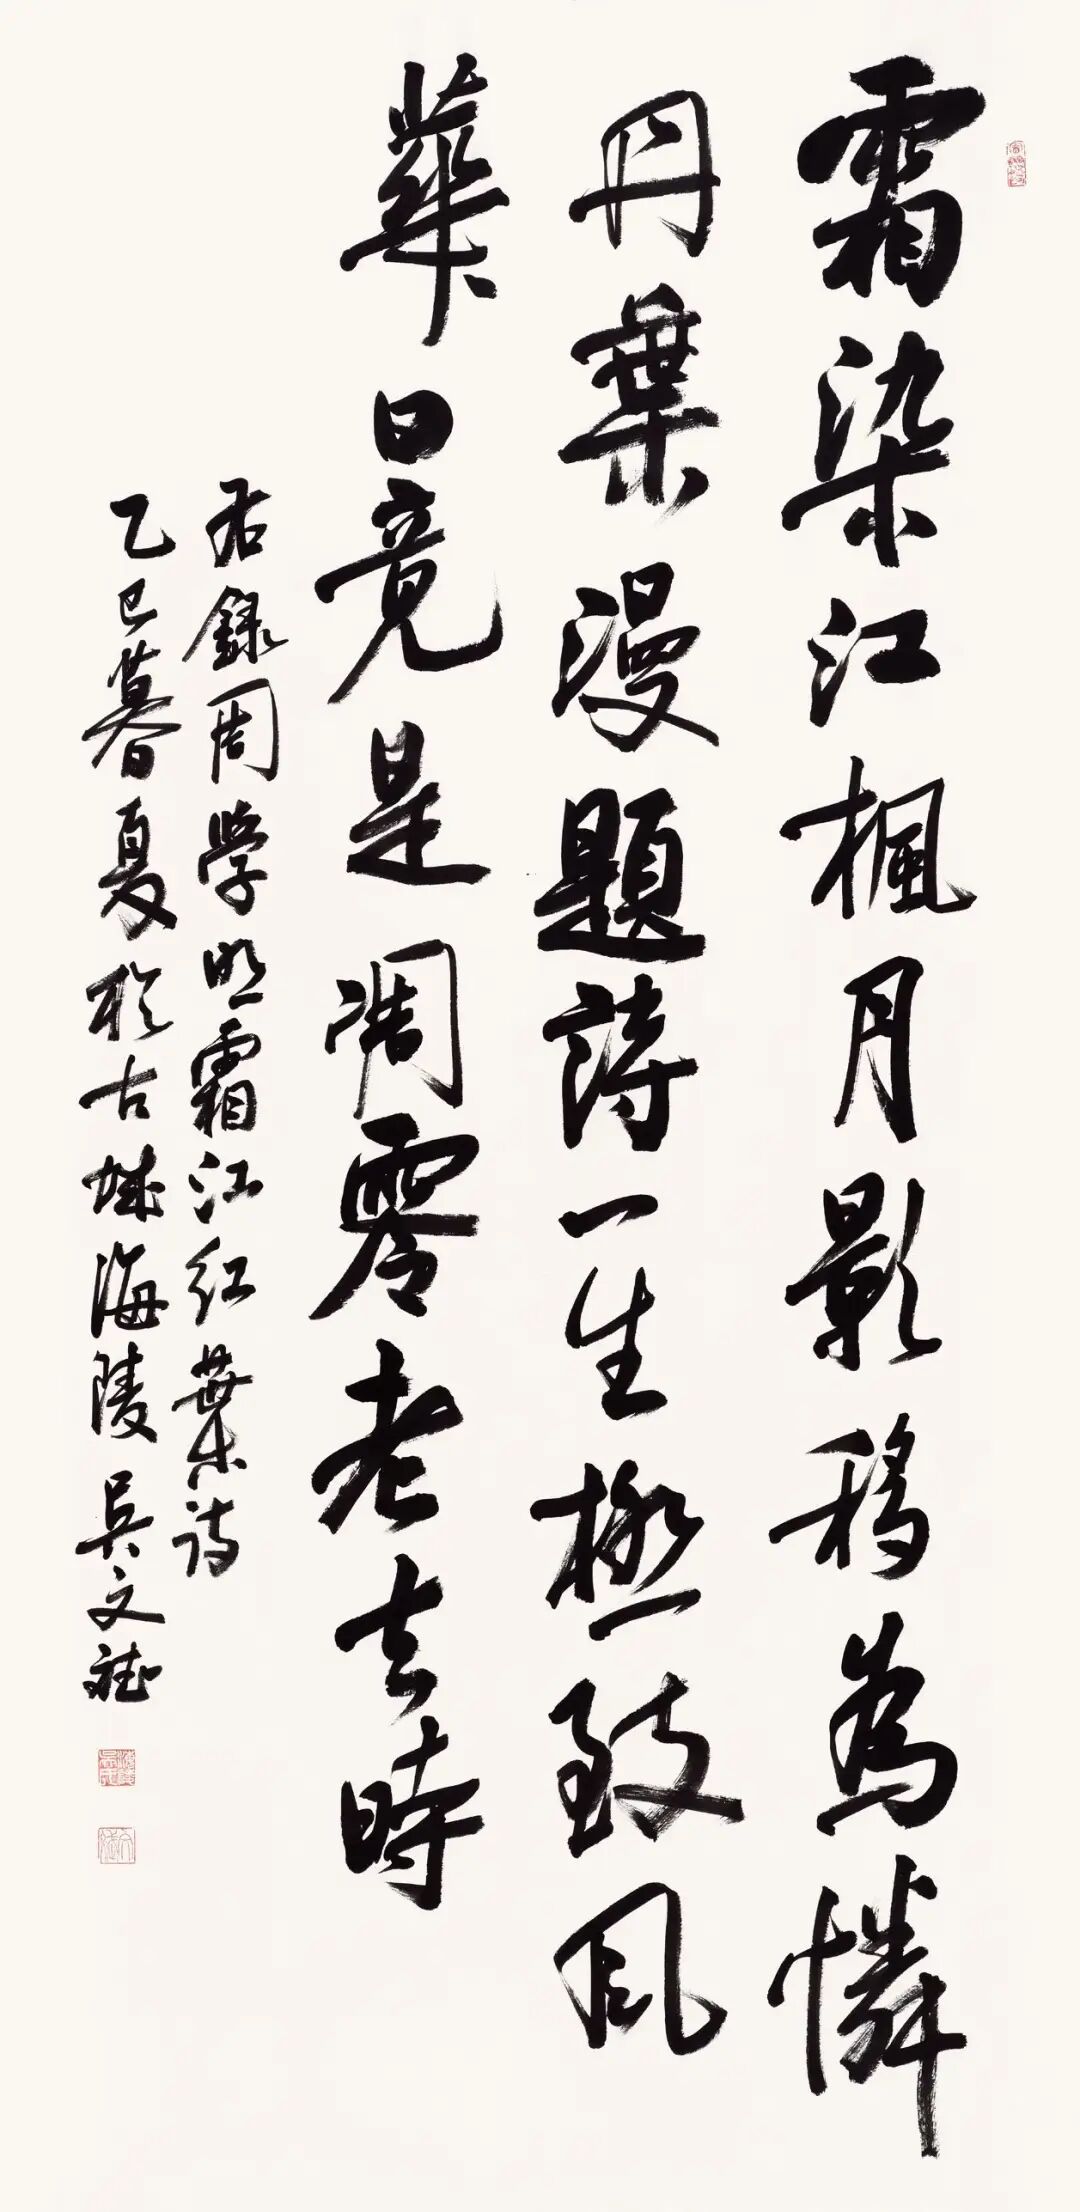 霜染江楓月影移為憐
丹葉漫題詩一生極致風
華日竟是凋零老去時
右錄周學忠霜江紅葉詩
乙巳暮夏於古城海陵吳文斌